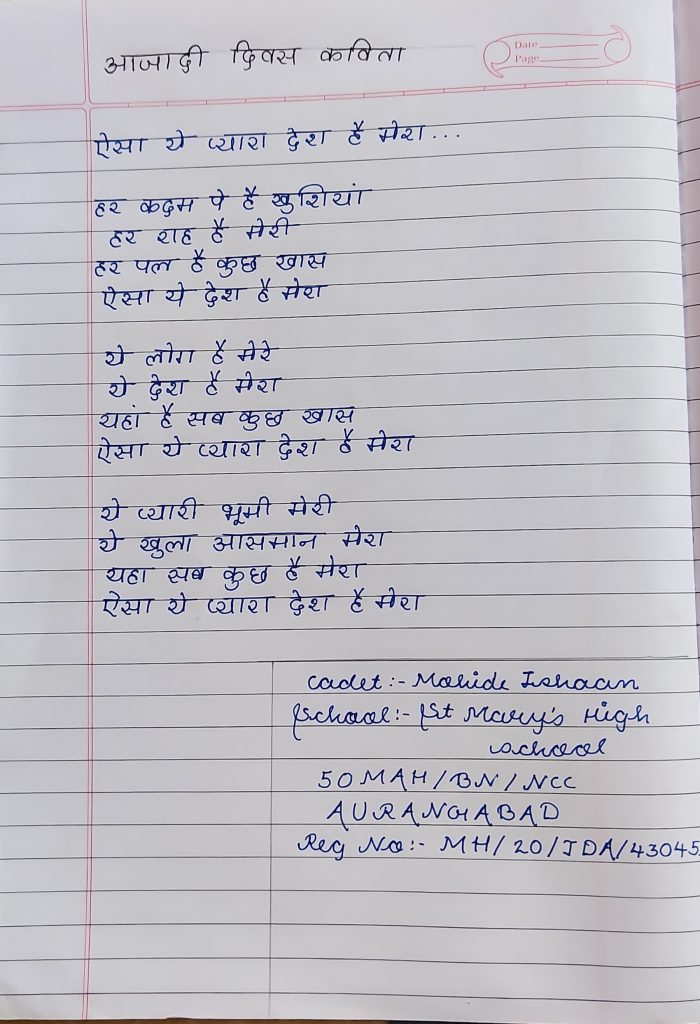 आजादी दिवस कविता
Date
Page
ऐसा ये प्यारा देश है मेरा...
हर कदम पे है खुशियां
हर राह है मेरी
हर पल है कुछ खास
ऐसा ये देश है मेरा
ये लोग है मेरे
ये देश है मेरा
यहां है सब कुछ खास
ऐसा ये प्यारा देश है मेरा
ये प्यारी भूमी मेरी
ये खुला आसमान मेरा
यहा सब कुछ है मेरा
ऐसा ये प्यारा देश है मेरा
Cadet:- Mohide Ishaan
School:- St Mary's High
school
50 MAH/BN/NCC
AURANGABAD
Reg No:- MH/20/JDA/43045